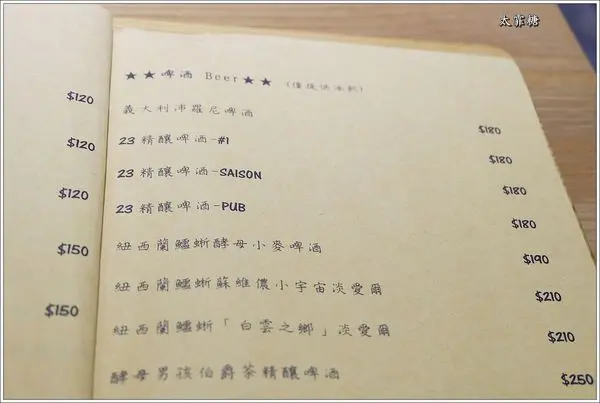 太罪糖
$120
$120
$120
$150
$150
★★啤酒 Beer★★ (僅提供冰飲)
義大利沛羅尼啤酒 $180
23 精釀啤酒-#1 $180
23 精釀啤酒-SAISON $180
23 精釀啤酒-PUB $180
紐西蘭鱷蜥酵母小麥啤酒 $190
紐西蘭鱷蜥蘇維儂小宇宙淡愛爾 $210
紐西蘭鱷蜥「白雲之鄉」淡愛爾 $210
酵母男孩伯爵茶精釀啤酒 $250